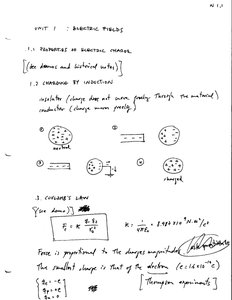 N 1.1
UNIT 1 : ELECTRIC FIELDS
1.1 PROPERTIES OF ELECTRIC CHARGE
[(See demos and historical notes)]
1.2 CHARGING BY INDUCTION
insulator (charge does not move freely through the material)
conductor (charge moves freely)
neutral
charged
3. COULOMB'S LAW
(see demo)
F = K q1 q2 / r²
K = 1/4πε0 = 8.987×10⁹ N·m²/C²
Force is proportional to the charges magnitudes
The smallest charge is that of the electron (e=1.6×10⁻¹⁹C)
qe = -e
qp = +e
qn = 0
[Thompson experiments]